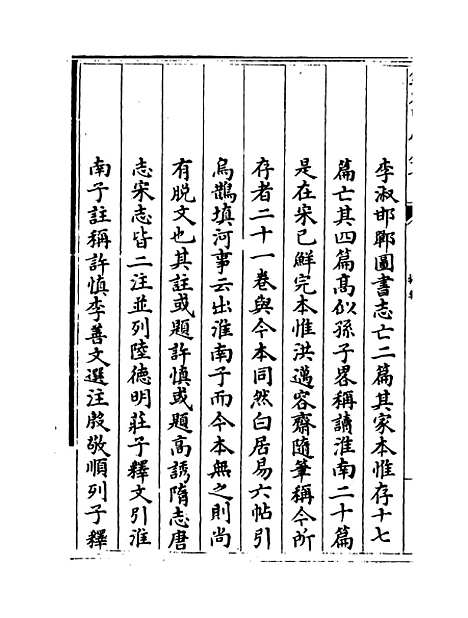 李淑邯鄲圖書志亡二篇其家本惟存十七
篇亡其四篇高似孫子畧稱讀淮南二十篇
是在宋已鮮完本惟洪邁容齋隨筆稱今所
存者二十一卷與今本同然白居易六帖引
烏鵲填河事云出淮南子而今本無之則尚
有脱文也其註或題許慎或題高誘隋志唐
志宋志皆二注並列陸德明莊子釋文引淮
南子註稱許慎李善文選注殷敬順列子釋